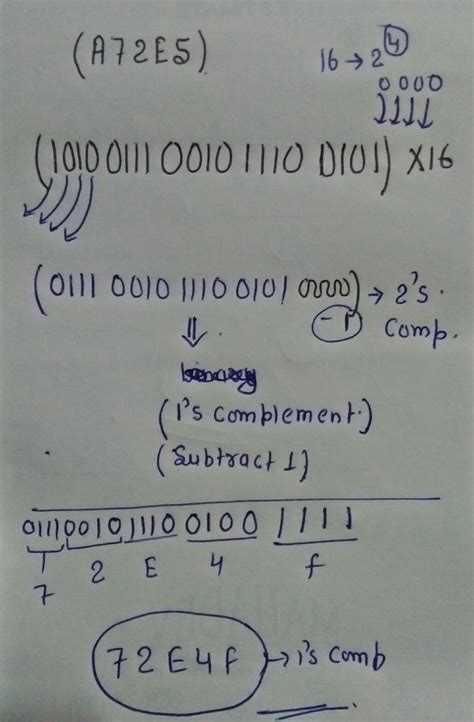 (A72E5)
16 → 2 4
0000
(1010 0111 0010 1110 0101) X16
(0111 0010 1110 0101 0000) → 2's
-1 Comp.
⇓
(1's complement)
(Subtract 1)
0111 0010 1110 0100 1111
7 2 E 4 f
72E4F → 1's Comb